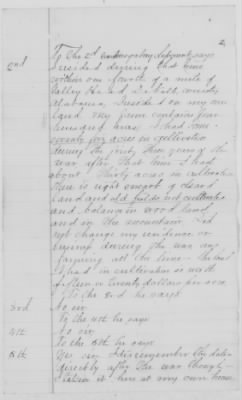 2
2nd To The 2d Interrogatory deponent says
I resided during that time
within one fourth of a mile of
Valley Head DeKalb county
Alabama. I resided on my own
land. My farm contains four
hundred acres. I had some
seventy five acres in cultivation
during the first three years of the
war after that time I had
about thirty acres in cultivation
there is eight
land and old fields not cultivated
and balance in wood land
and in the mountain. I did
not change my residence or
business during the war was
farming all the time. The land
I had in cultivation is worth
fifteen or twenty dollars per acre
To the 3rd he says
3rd No sir
To the 4th he says
4th No sir
To the 5th he says
5th Yes sir I disremember the dates
directly after the war though
I taken it here at my own house